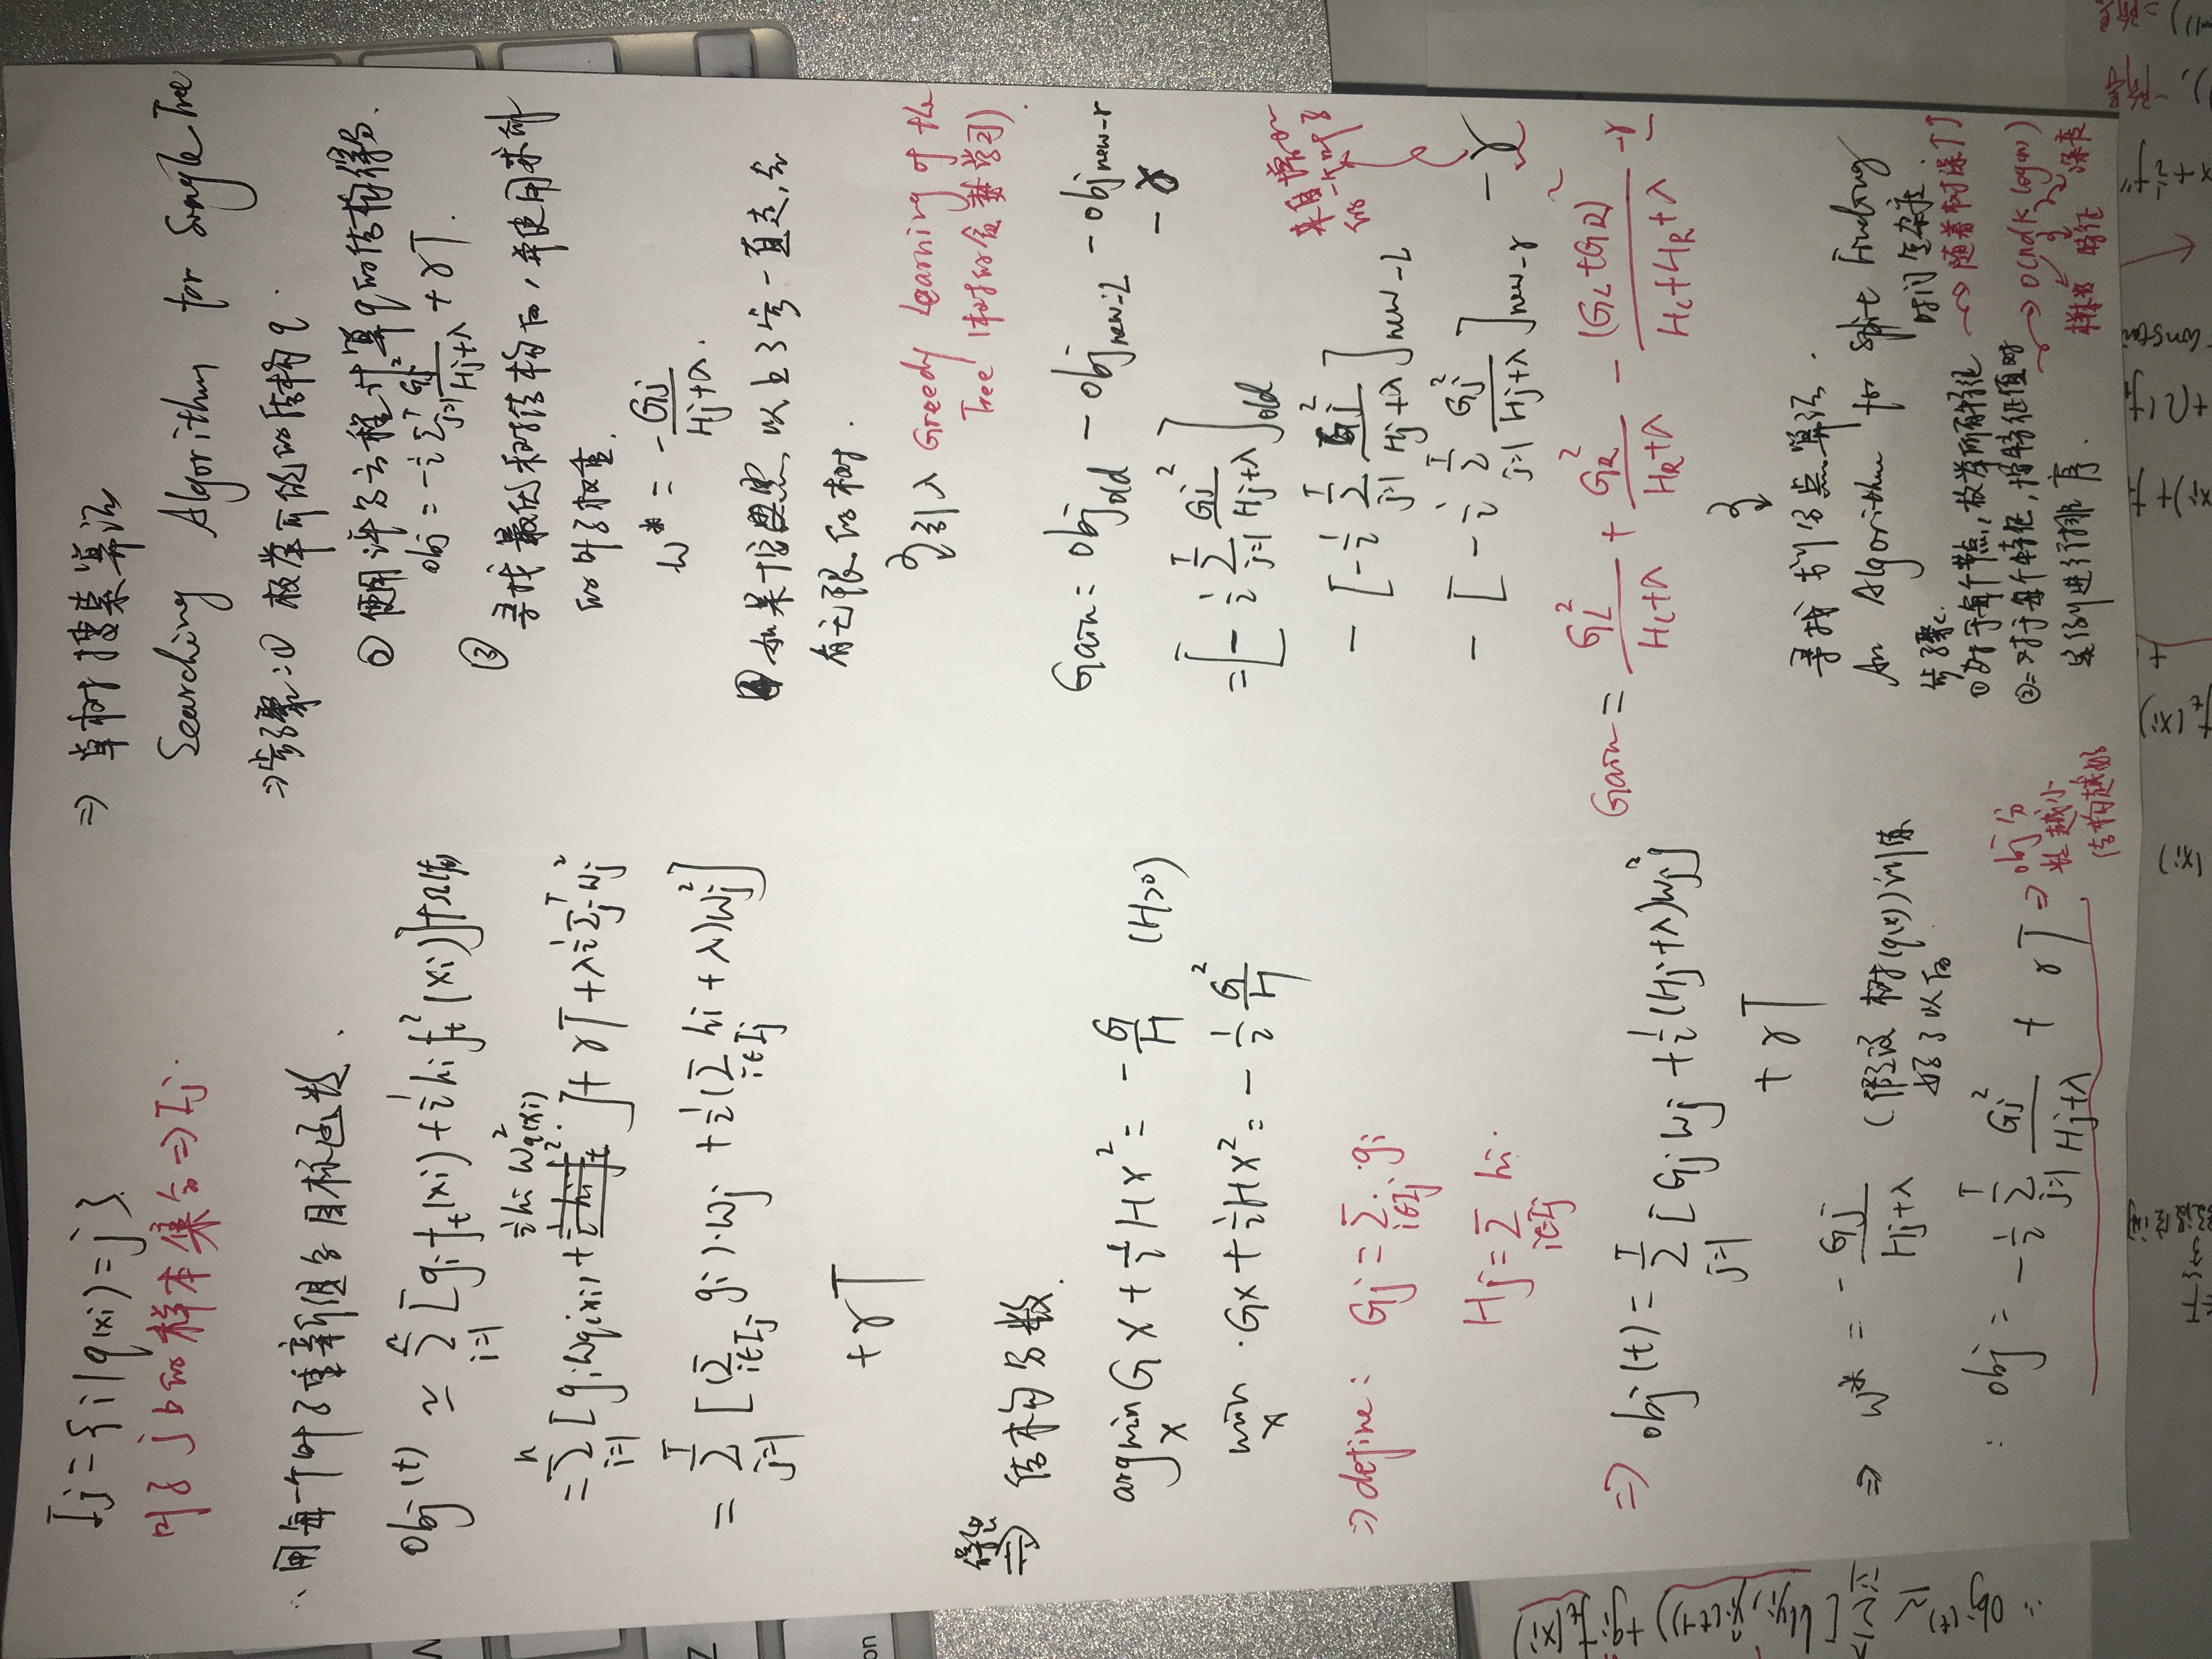 Ij = {i | q(xi) = j}.
叶子 j 上的样本集合 ⇒ Ij.
∴ 用每一个叶子重新组合目标函数.
Obj(t) ≃ Σ_{i=1}^{n} [gi ft(xi) + ½ hi ft²(xi)] + Ω(ft)
½ hi w²q(xi)
= Σ_{i=1}^{n} [gi wq(xi) + ] + γT + λ ½ Σ_j^T wj²
= Σ_{j=1}^{T} [(Σ_{i∈Ij} gi)·wj + ½ (Σ_{i∈Ij} hi + λ) wj²]
+ γT
得出
⇒ 结构分数.
argmin_x Gx + ½Hx² = -G/H (H>0)
min_x ·Gx + ½Hx² = -½ G²/H
⇒ define: Gj = Σ_{i∈Ij} gi
Hj = Σ_{i∈Ij} hi.
⇒ obj(t) = Σ_{j=1}^{T} [Gj wj + ½(Hj+λ)wj²]
+ γT
⇒ w* = -Gj/(Hj+λ) (假设树(q(x))训练
好了以后
∴ obj = -½ Σ_{j=1}^{T} Gj²/(Hj+λ) + γT ⇒ obj分
数越小
结构越好
⇒ 单树搜索算法
Searching Algorithm for Single Tree
⇒ 步骤: ① 枚举可能的结构 q.
② 使用评分方程计算 q 的结构得分.
obj = -½ Σ_{j=1}^{T} Gj²/(Hj+λ) + γT.
③ 寻找最优树结构后, 并使用求解
的叶子权重.
w* = -Gj/(Hj+λ).
④ 如果 以上 一直走, 会
有无限的树.
引入 Greedy Learning of the
Tree (树的贪婪学习)
Gain = obj_old - obj_new-L - obj_new-r
- γ
= [-½ Σ_{j=1}^{T} Gj²/(Hj+λ)]_old
- [-½ Σ_{j=1}^{T} Gj²/(Hj+λ)]_new-L
- [-½ Σ_{j=1}^{T} Gj²/(Hj+λ)]_new-r - γ
来自增加
的一个叶子
Gain = GL²/(HL+λ) + GR²/(HR+λ) - (GL+GR)²/(HL+HR+λ) - γ
寻找划分点算法.
An Algorithm for Split Finding
步骤. 时间复杂度.
① 对于每个节点, 枚举所有特征 → 随着树深↑↑
②= 对于每个特征, 按特征值对 → O(ndK logn)
实例进行排序.
样本数 特征 深度
∴ obj(t) ≃ Σ_{i=1}^{n} [l(yi, ŷi(t-1)) + gi ft(xi)